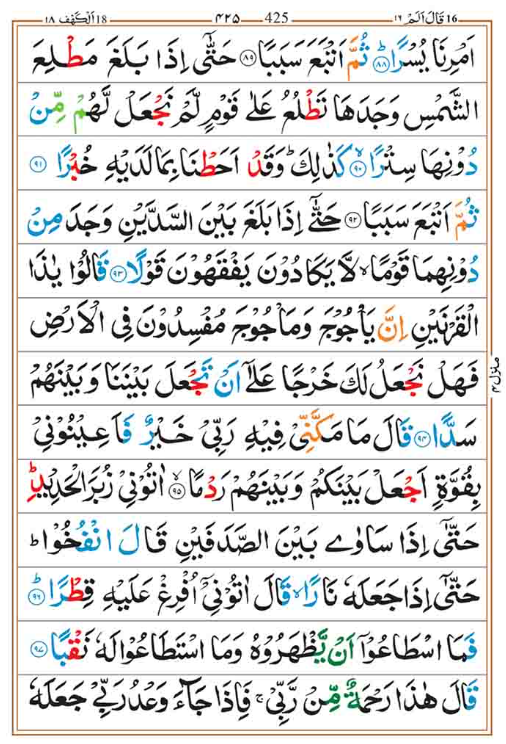 ١٦ قال الم 16 ۴۲۵ 425 ١٨ الكهف 18
اَمْرِنَا يُسْرًا ﴿٨٨﴾ ثُمَّ اَتْبَعَ سَبَبًا ﴿٨٩﴾ حَتّٰٓى اِذَا بَلَغَ مَطْلِعَ
الشَّمْسِ وَجَدَهَا تَطْلُعُ عَلٰى قَوْمٍ لَّمْ نَجْعَلْ لَّهُمْ مِّنْ
دُوْنِهَا سِتْرًا ﴿٩٠﴾ كَذٰلِكَ ؕ وَقَدْ اَحَطْنَا بِمَا لَدَيْهِ خُبْرًا ﴿٩١﴾
ثُمَّ اَتْبَعَ سَبَبًا ﴿٩٢﴾ حَتّٰٓى اِذَا بَلَغَ بَيْنَ السَّدَّيْنِ وَجَدَ مِنْ
دُوْنِهِمَا قَوْمًا ۙ لَّا يَكَادُوْنَ يَفْقَهُوْنَ قَوْلًا ﴿٩٣﴾ قَالُوْا يٰذَا
الْقَرْنَيْنِ اِنَّ يَاْجُوْجَ وَمَاْجُوْجَ مُفْسِدُوْنَ فِى الْاَرْضِ
فَهَلْ نَجْعَلُ لَكَ خَرْجًا عَلٰٓى اَنْ تَجْعَلَ بَيْنَنَا وَبَيْنَهُمْ
سَدًّا ﴿٩٤﴾ قَالَ مَا مَكَّنِّىْ فِيْهِ رَبِّىْ خَيْرٌ فَاَعِيْنُوْنِىْ
بِقُوَّةٍ اَجْعَلْ بَيْنَكُمْ وَبَيْنَهُمْ رَدْمًا ۙ﴿٩٥﴾ اٰتُوْنِىْ زُبَرَ الْحَدِيْدِ ؕ
حَتّٰٓى اِذَا سَاوٰى بَيْنَ الصَّدَفَيْنِ قَالَ انْفُخُوْا ؕ
حَتّٰٓى اِذَا جَعَلَهٗ نَارًا ۙ قَالَ اٰتُوْنِىْۤ اُفْرِغْ عَلَيْهِ قِطْرًا ؕ﴿٩٦﴾
فَمَا اسْطَاعُوْۤا اَنْ يَّظْهَرُوْهُ وَمَا اسْتَطَاعُوْا لَهٗ نَقْبًا ﴿٩٧﴾
قَالَ هٰذَا رَحْمَةٌ مِّنْ رَّبِّىْ ۚ فَاِذَا جَآءَ وَعْدُ رَبِّىْ جَعَلَهٗ
منزل ۴